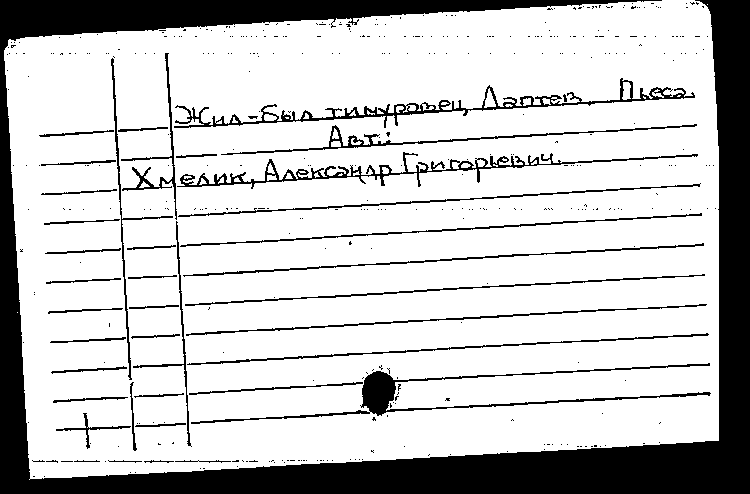 Жил-был тимуровец Лаптев. Пьеса.
Авт.:
Хмелик, Александр Григорьевич.